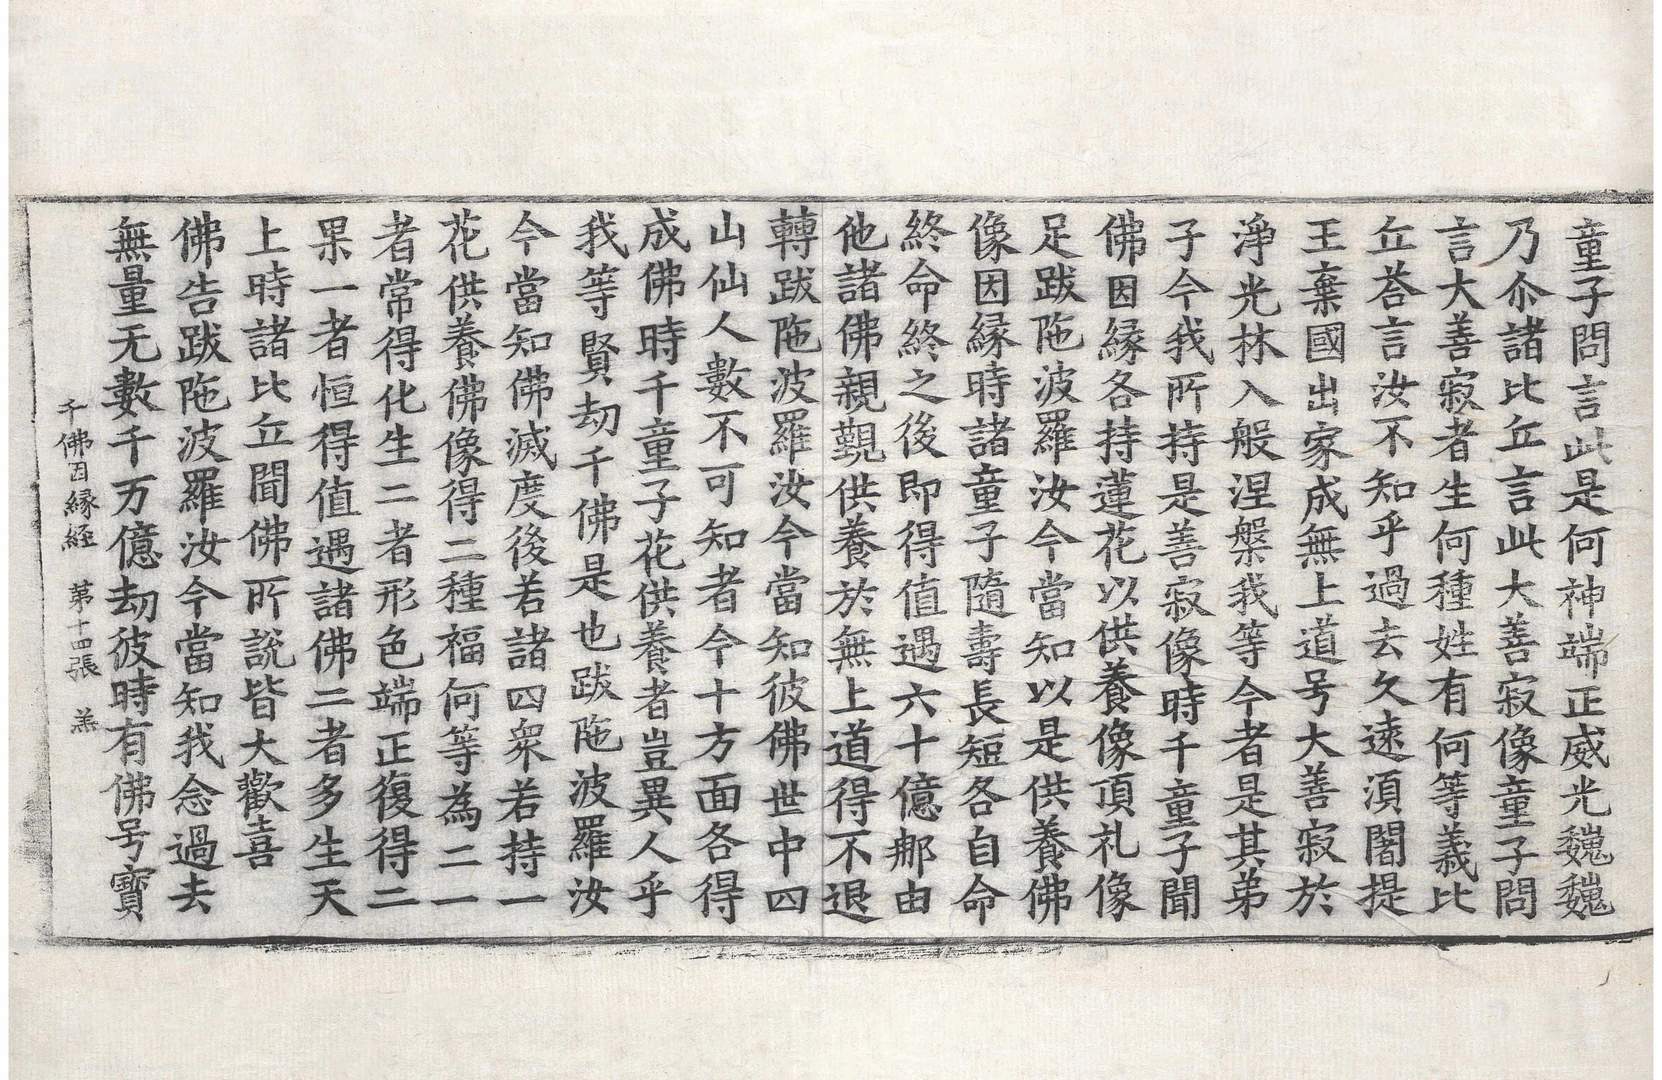 童子問言此是何神端正威光巍巍
乃尒諸比丘言此大善寂像童子問
言大善寂者生何種姓有何等義比
丘荅言汝不知乎過去久遠湏闍提
王棄國出家成無上道号大善寂於
淨光林入般涅槃我等今者是其弟
子今我所持是善寂像時千童子聞
佛因緣各持蓮花以供養像頂礼像
足跋陁波羅汝今當知以是供養佛
像因緣時諸童子隨壽長短各自命
終命終之後即得值遇六十億那由
他諸佛親覲供養於無上道得不退
轉跋陁波羅汝今當知彼佛世中四
山仙人數不可知者今十方面各得
成佛時千童子花供養者豈異人乎
我等賢劫千佛是也跋陁波羅汝
今當知佛滅度後若諸四衆若持一
花供養佛像得二種福何等為二一
者常得化生二者形色端正復得二
果一者恒得值遇諸佛二者多生天
上時諸比丘聞佛所說皆大歡喜
佛告跋陁波羅汝今當知我念過去
無量无數千万億劫彼時有佛号寶
千佛因緣経 第十四張 羔